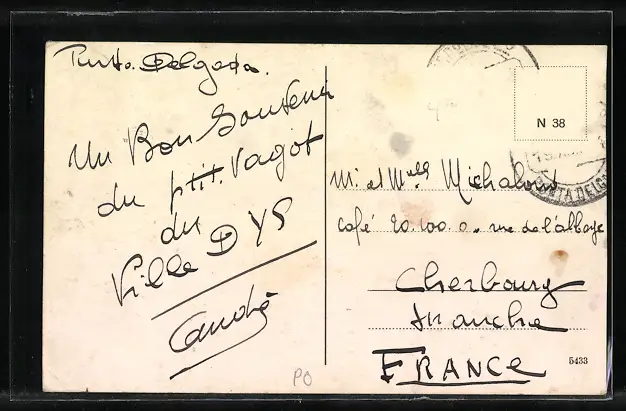 Punta Delgada.
Un Bon Souvenir
du ptit. Vagot
du
Ville D'YS
André
N 38
PONTA DELGADA
M. et Mell
café 20.100.0. rue de l'abbaye
Cherbourg
Manche
FRANCE
5433
PO